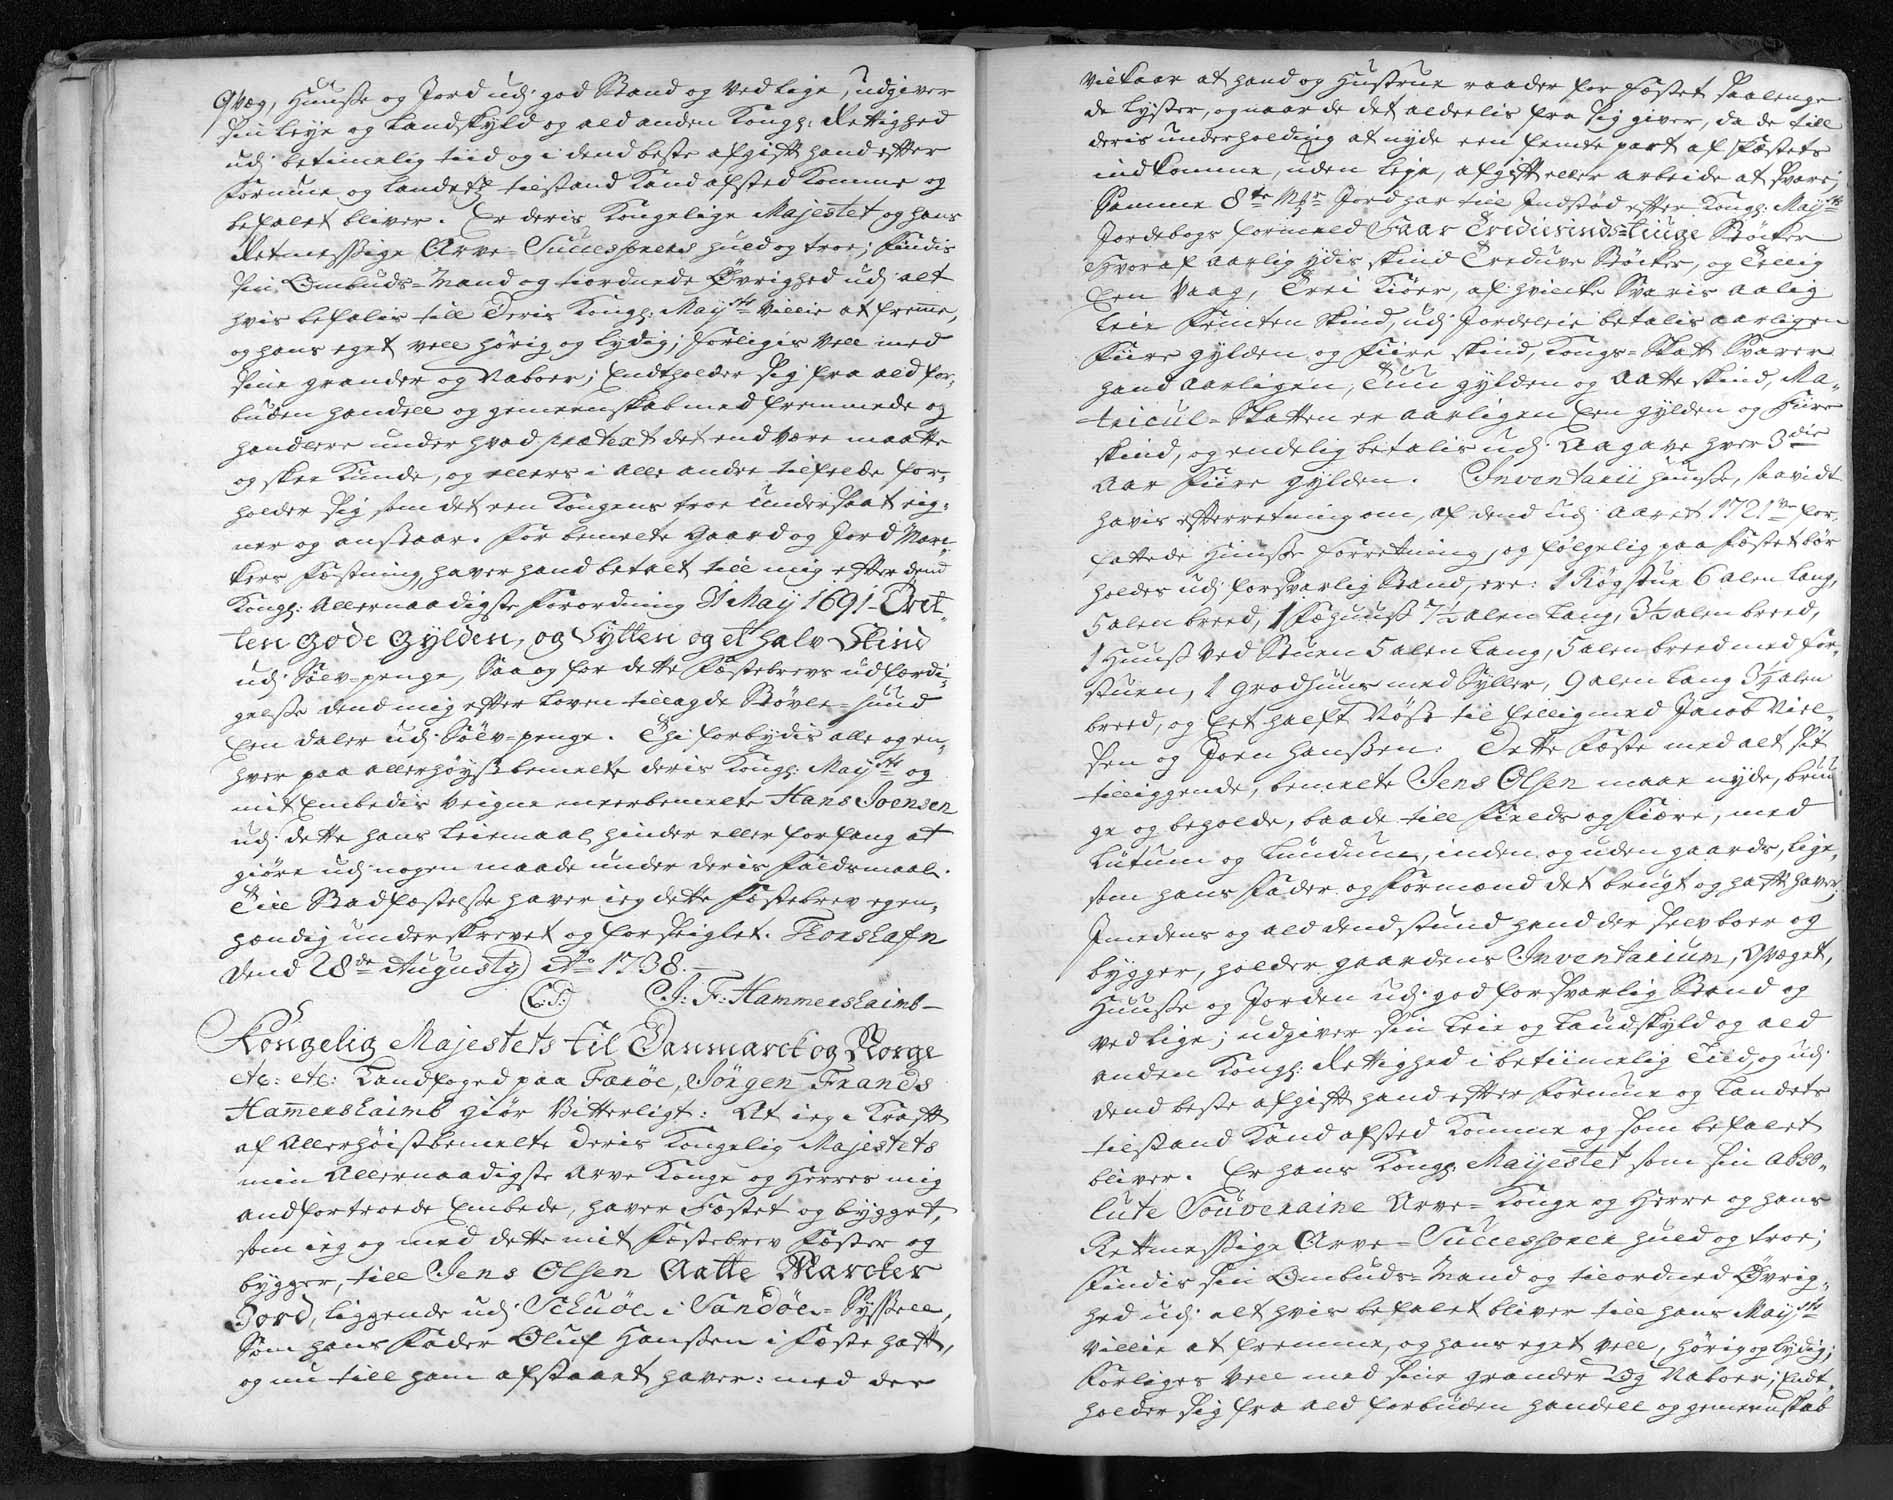 Qvæg, Huuße og Jord udj god Stand og Ved Lige, udgiver
sin Leÿe og Landskyld og ald anden Kongl: Rettighed
udj betimelig tiid og i dend beste afgift hand efter
Formue og Landetz tilstand Kand afsted Komme og
befalet bliver. Er deris Kongelige Majestet og hans
Retmessige Arve-Successorers huld og troe; Findis
sin Ombuds-Mand og tiordnede Øvrighed udj alt
hvis befalis till Deris Kongl: Mayts Villie at fremme,
og hans eget vell hørig og lydig; forligis Vell med
sine grander og Naboer; Endtholder sig fra ald for-
buden handell og gemeenskab med fremmede og
handlere under hvad prætext det end være maatte
og skee Kunde, og ellers i alle andre tilfelde for-
holder sig som det een Kongens troe Undersaat eig-
ner og anstaar. For bemelte Gaard og Jord Mar-
kers Fæstning haver hand betalt till mig efter dend
Kongl: Allernaadigste Forordning 31 Maÿ 1691 - Tret-
ten gode Gÿlden, og Sytten og et halv Skind
udj Sølv-penge, Saa og for dette Fæstebrevs udfærdi-
gelse dend mig efter Loven tillagde Støvle-hund
Een daler udj Sølv-penge. Thi forbydis alle og en-
hver paa allerhøystbemelte deris Kongl: Mayts og
mit Embedis Veigne meerbemelte Hans Joensen
udj dette hans Leiemaal hinder eller forfang at
giøre udj nogen maade under deris Faldsmaal.
Till Stadfæstelse haver ieg dette Fæstebrev egen-
hændig underskrevet og forseiglet. Thorshafn
dend 28de Augustÿ Ao 1738.
(L:S:) J: F: Hammershaimb
Kongelig Majestets til Danmarck og Norge
etc: etc: Landfoged paa Færøe, Jörgen Frands
Ham̄ershaimb giør Vitterligt: At ieg i Kraft
af Allerhøistbemelte Deris Kongelig Majestets
min Allernaadigste Arve Konge og Herres mig
andfortroede Embede, haver Fæstet og bygget,
som ieg og med dette mit Fæstebrev Fæster og
bygger, till Jens Olsen Aatte Marcker
Jord, liggende udj Schuöe i Sandöe-Sÿssell,
Som hans Fader Oluf Hanssen i Fæste haft,
og nu till ham afstaaet haver: med der
Vilkaar at hand og Hustrue raader for Fæstet saalenge
de lyster, og naar de det aldeelis fra sig giver, da de till
deris underholding at nyde een femte part af Fæstets
indkomme, uden Leje, afgift eller arbeide at svare;
Samme 8te Mkr Jord har till Indstød efter Kongl: Mayts
Jordebogs formeld Faar Tredusinds-tiuge Stöcker
Hvoraf aarlig ydis skind Treduve Stöcker, og Tellig
Een Vaag, Trei Kiöer, af hvilcke Svaris aalig
Leie Femten skind, udj Jordeleie betalis aarligen
Fiire gylden og Fiire skind, Kongs-Skatt Svarer
hand aarligen, Tuu gylden og Aatte skind, Ma-
tricul-Skatten er aarligen Een gylden og Fiire
skind, og endelig betalis udj Aagave hver 3die
Aar Fiire gylden. Inventarii Huuße, saavidt
havis efterretning om, af dend udj Aaret 1721de for-
fattede Huuße Forretning, og følgelig paa Fæstet bør
holdes udj forsvarlig Stand, ere: 1 Røgstue 6 alen Lang,
5 alen breed, 1 Fæhuuß 7½ alen Lang, 3½ alen breed,
1 Huuß Ved Stuen 5 alen Lang, 5 alen breed med For-
stuen, 1 Grodhuus med Sÿller, 9 alen Lang 3½ alen
breed, og Eet halft Nöst til fellig med Jacob Niel-
sen og Joen Hanßen. Dette Fæste med alt sit
tilliggende, bemelte Jens Olsen maae nyde, brue-
ge og beholde, baade till Fields og Fiære, med
Lutum og Lundum, inden og uden gaards, Lige
som hans Fader og Formænd det brugt og haft haver;
Imedens og ald dend stund hand der selv boer og
bygger, holder gaardens Inventarium, Qvæget,
Huuße og Jorden udj god forsvarlig Stand og
ved Lige; udgiver sin Leie og Landskyld og ald
anden Kongl: Rettighed i betiimelig Tiid, og udj
dend beste afgift hand efter Formue og Landets
tilstand Kand afsted Komme og som befalet
bliver. Er hans Kongl: Maÿestet som sin abso-
lute Souveraine Arve-Konge og Herre og hans
Retmessige Arve-Successorer huld og troe;
Findis sin Ombuds-Mand og tilordned Øvrig-
hed udj alt hvis befalet bliver till hans Mayts
Villie at fremme, og hans eget vell, hörig og lydig;
Forliges Vell med sine grander og Naboer; Endt-
holder sig fra ald forbuden handell og gemeenskab